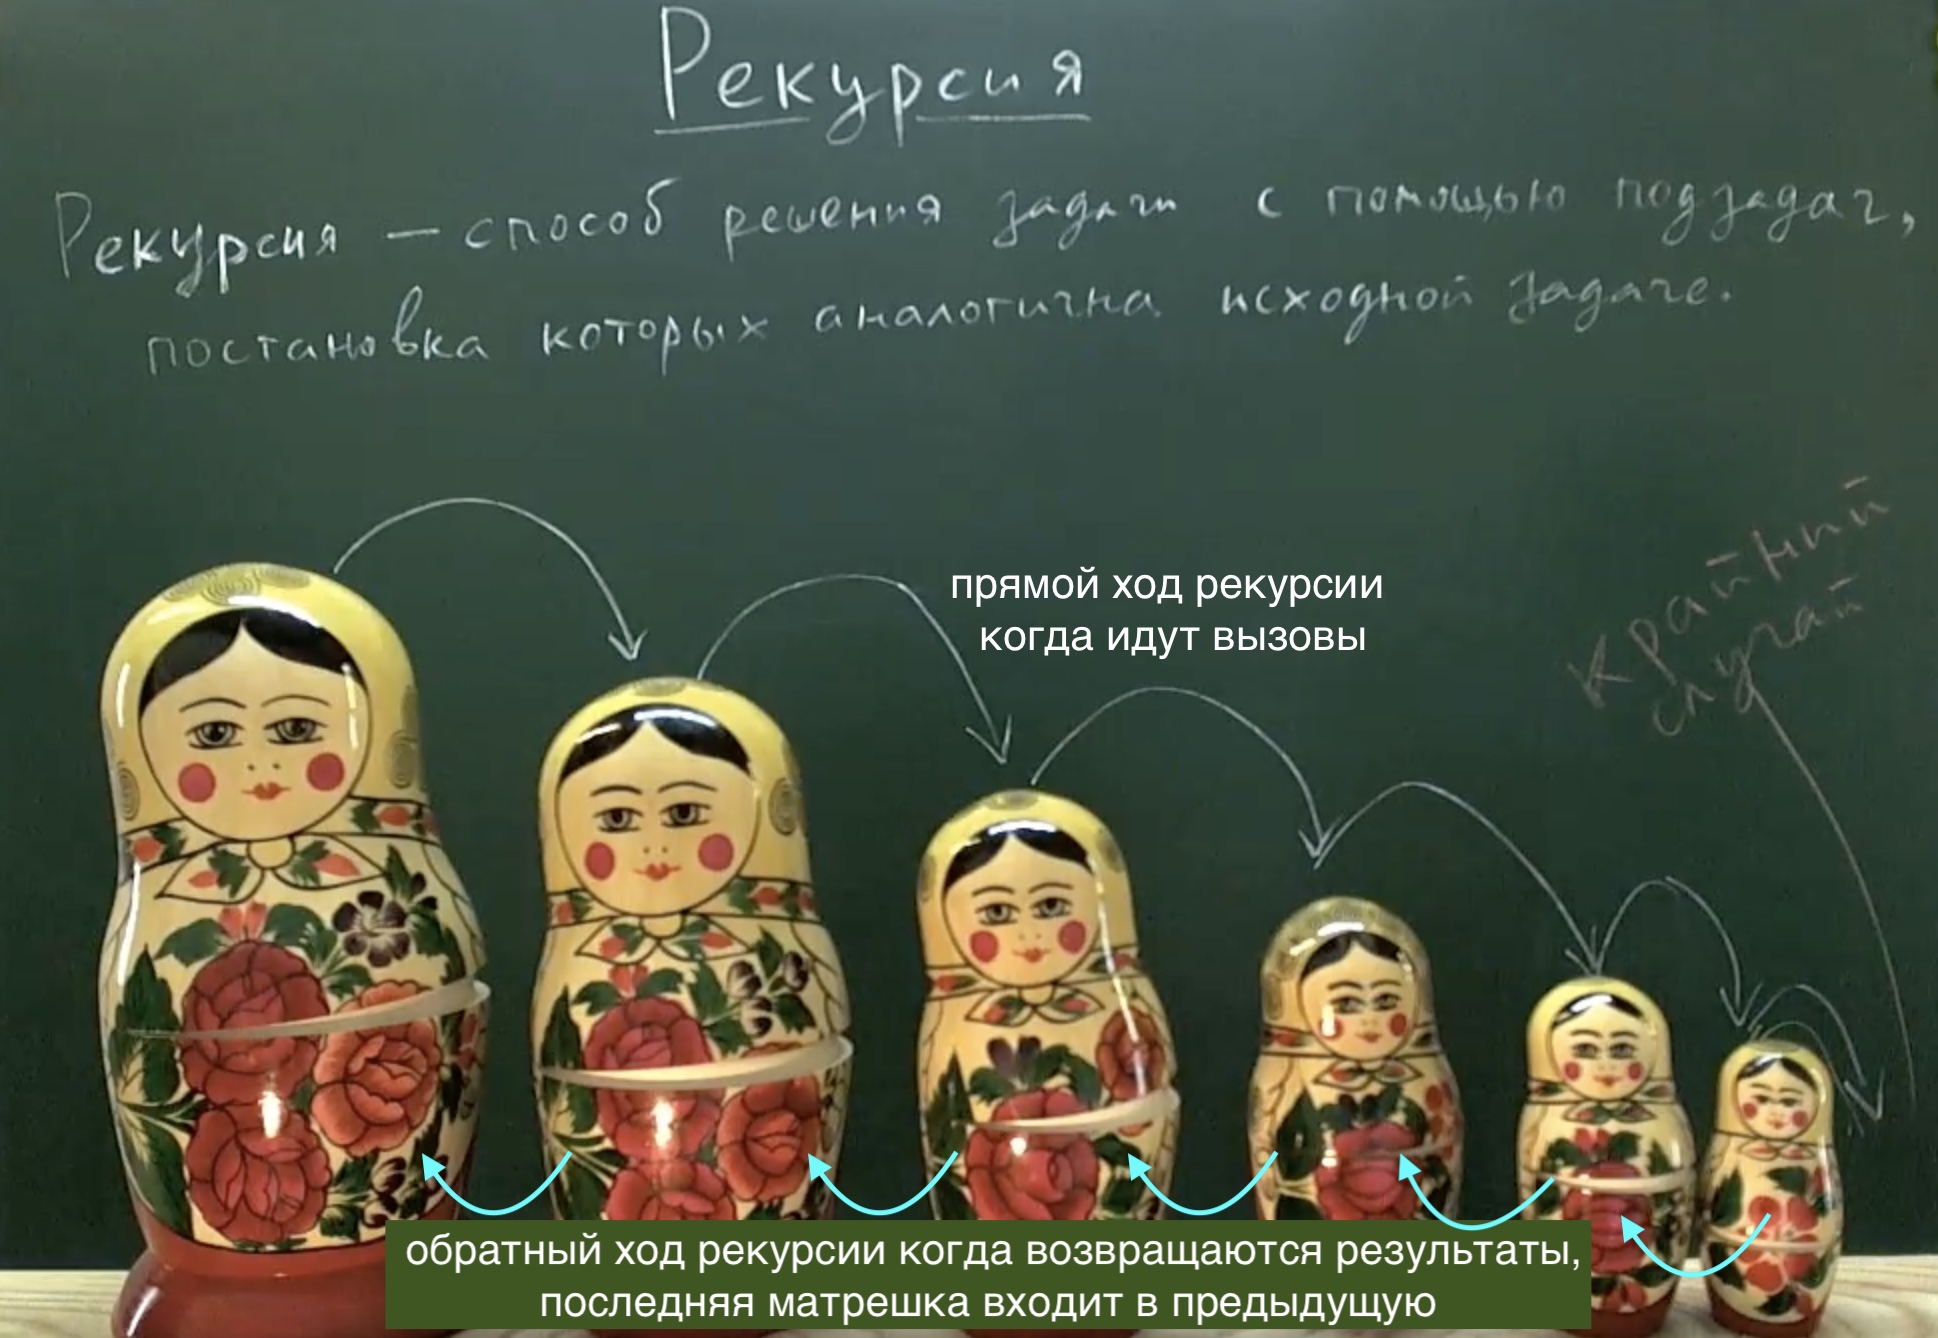 Рекурсия
Рекурсия — способ решения задачи с помощью подзадач,
постановка которых аналогична исходной задаче.
прямой ход рекурсии
когда идут вызовы
крайний
случай
обратный ход рекурсии когда возвращаются результаты,
последняя матрешка входит в предыдущую